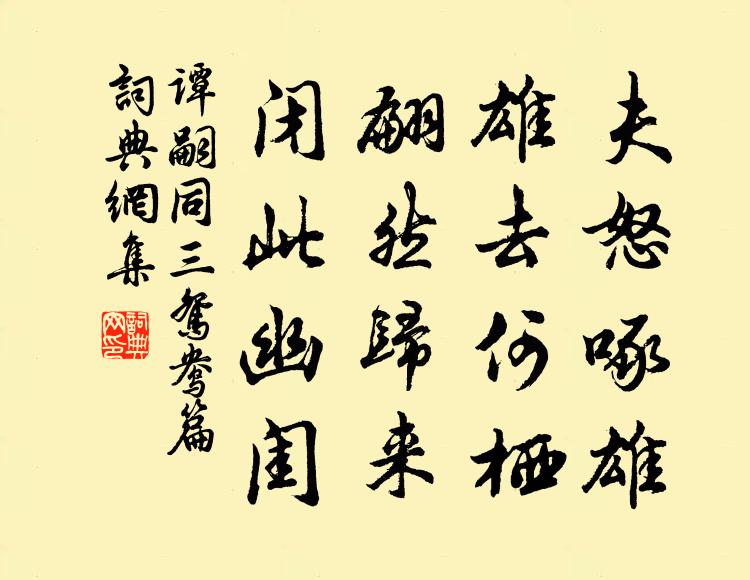 夫怒啄雄
雄去何栖
翩然歸来
闭此幽闺
谭嗣同三鴛鴦篇
詞典網集
詞典
网印